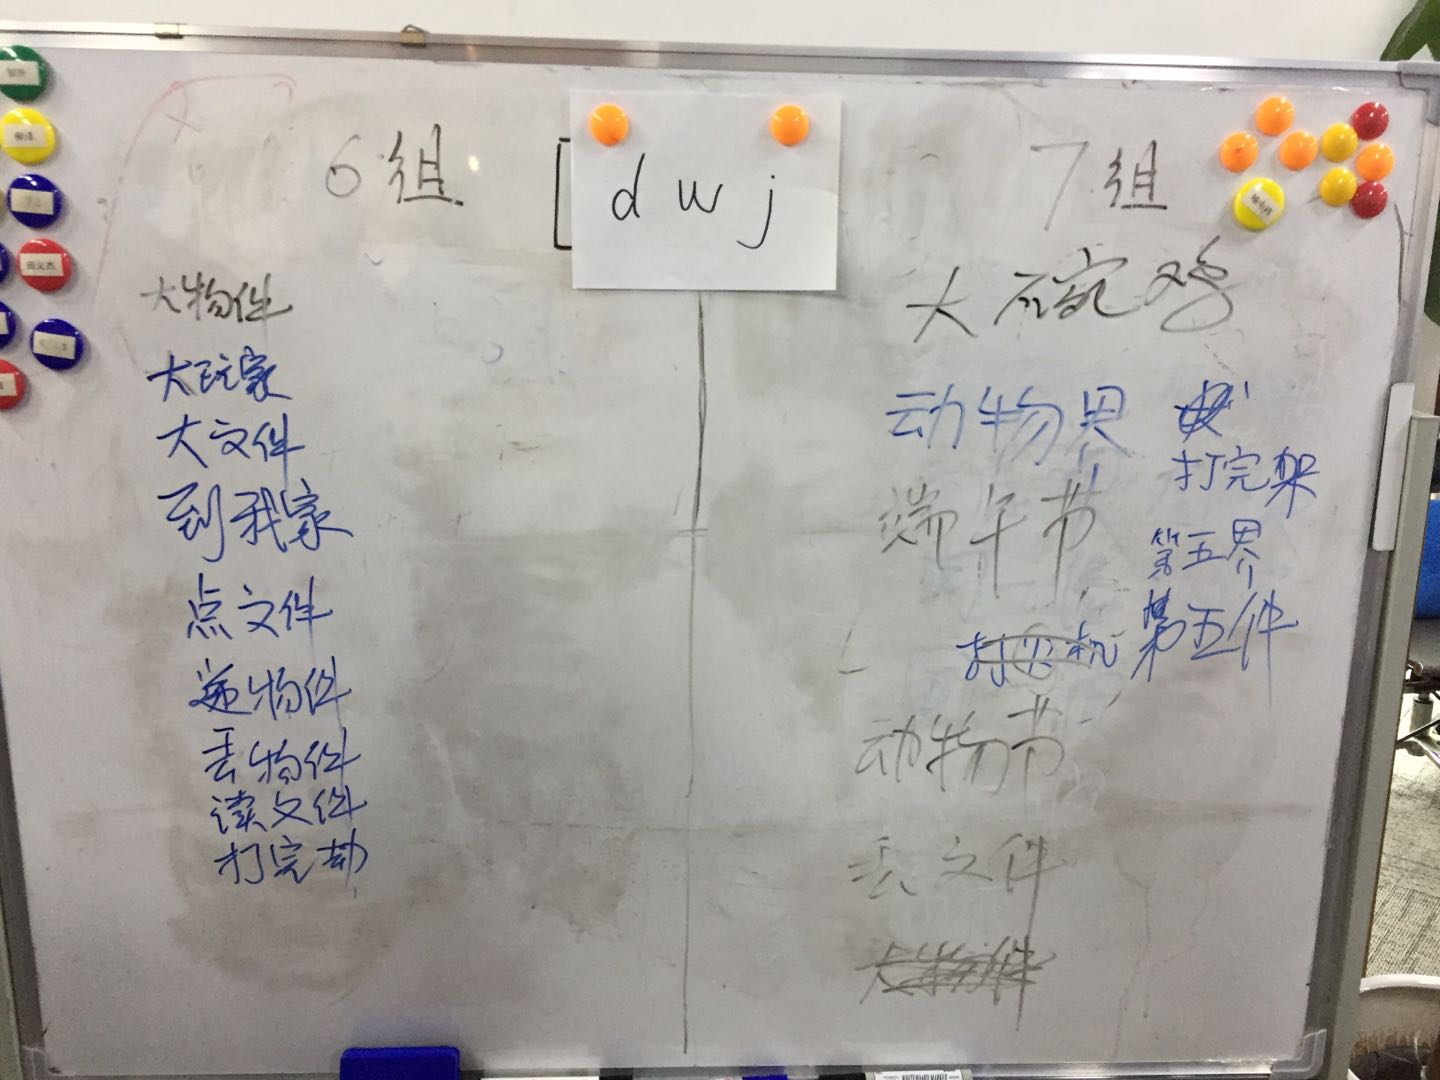 6组
d w j
7组
大物件
大玩家
大文件
到我家
点文件
递物件
丢物件
读文件
打完劫
大碗鸡
动物界
打完架
端午节
第五界
打火机
第五件
动物节
丢文件
大物件
田义杰
WHITEBOARD MARKER